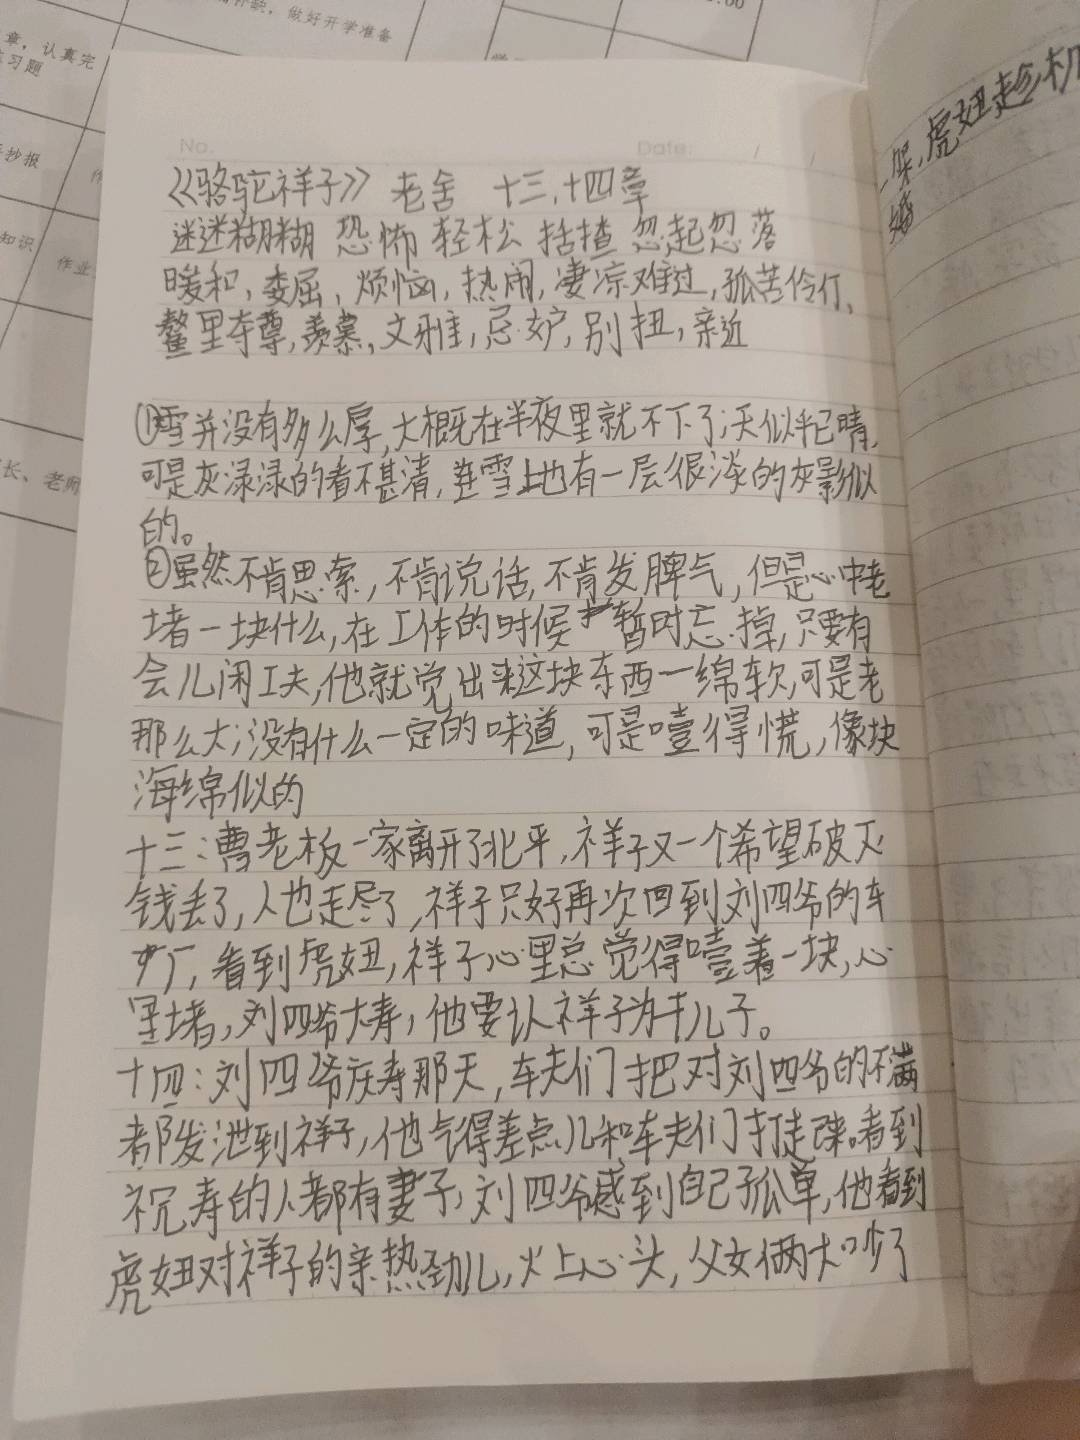 补缺，做好开学准备
章，认真完
练习题
手抄报
知识
作业
长、老师
No.
Date: / /
《骆驼祥子》 老舍 十三,十四章
迷迷糊糊 恐怖 轻松 拮揸 忽起忽落
暖和,委屈,烦恼,热闹,凄凉难过,孤苦伶仃、
鳌里夺尊,羡慕,文雅,忌妒,别扭,亲近
①雪并没有多么厚,大概在半夜里就不下了;天似乎已晴,
可是灰渌渌的看不甚清,连雪上也有一层很淡的灰影似
的。
②虽然不肯思索,不肯说话,不肯发脾气,但是心中老
堵一块什么,在工作的时候暂时忘掉,只要有
会儿闲工夫,他就觉出来这块东西一绵软,可是老
那么大;没有什么一定的味道,可是噎得慌,像块
海绵似的
十三:曹老板一家离开了北平,祥子又一个希望破灭
钱丢了,人也走尽了,祥子只好再次回到刘四爷的车
厂,看到虎妞,祥子心里总觉得噎着一块,心
里堵,刘四爷大寿,他要认祥子为干儿子。
十四:刘四爷庆寿那天,车夫们把对刘四爷的不满
都发泄到祥子,他气得差点儿和车夫们打起来。看到
祝寿的人都有妻子,刘四爷感到自己孤单,他看到
虎妞对祥子的亲热劲儿,火上心头,父女俩大吵了
一架,虎妞趁机
婚